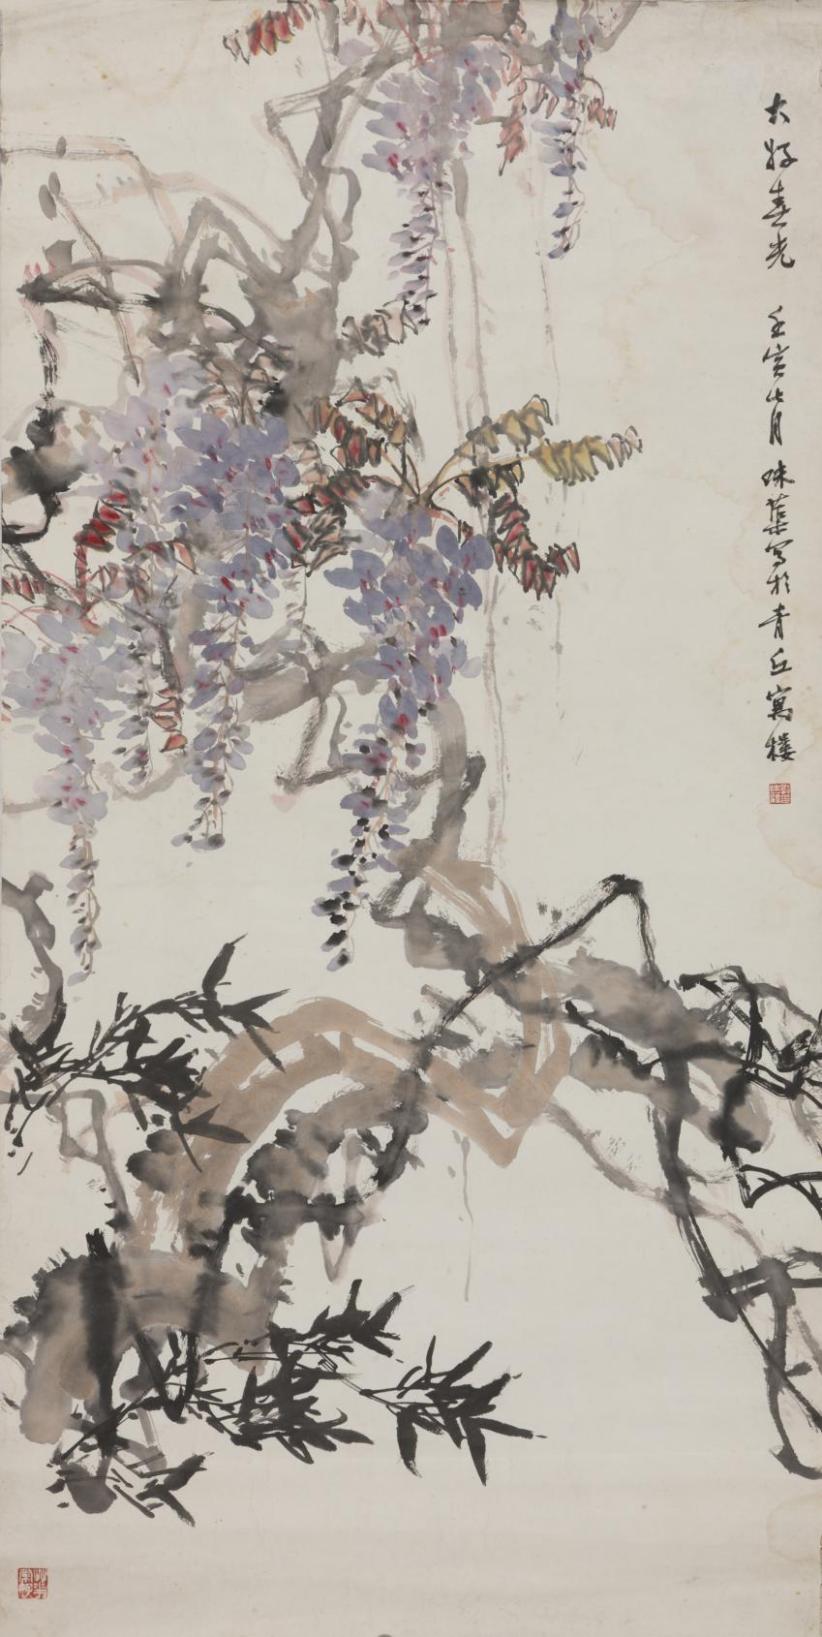 大好春光 壬寅七月 味蕖写於青丘寓樓